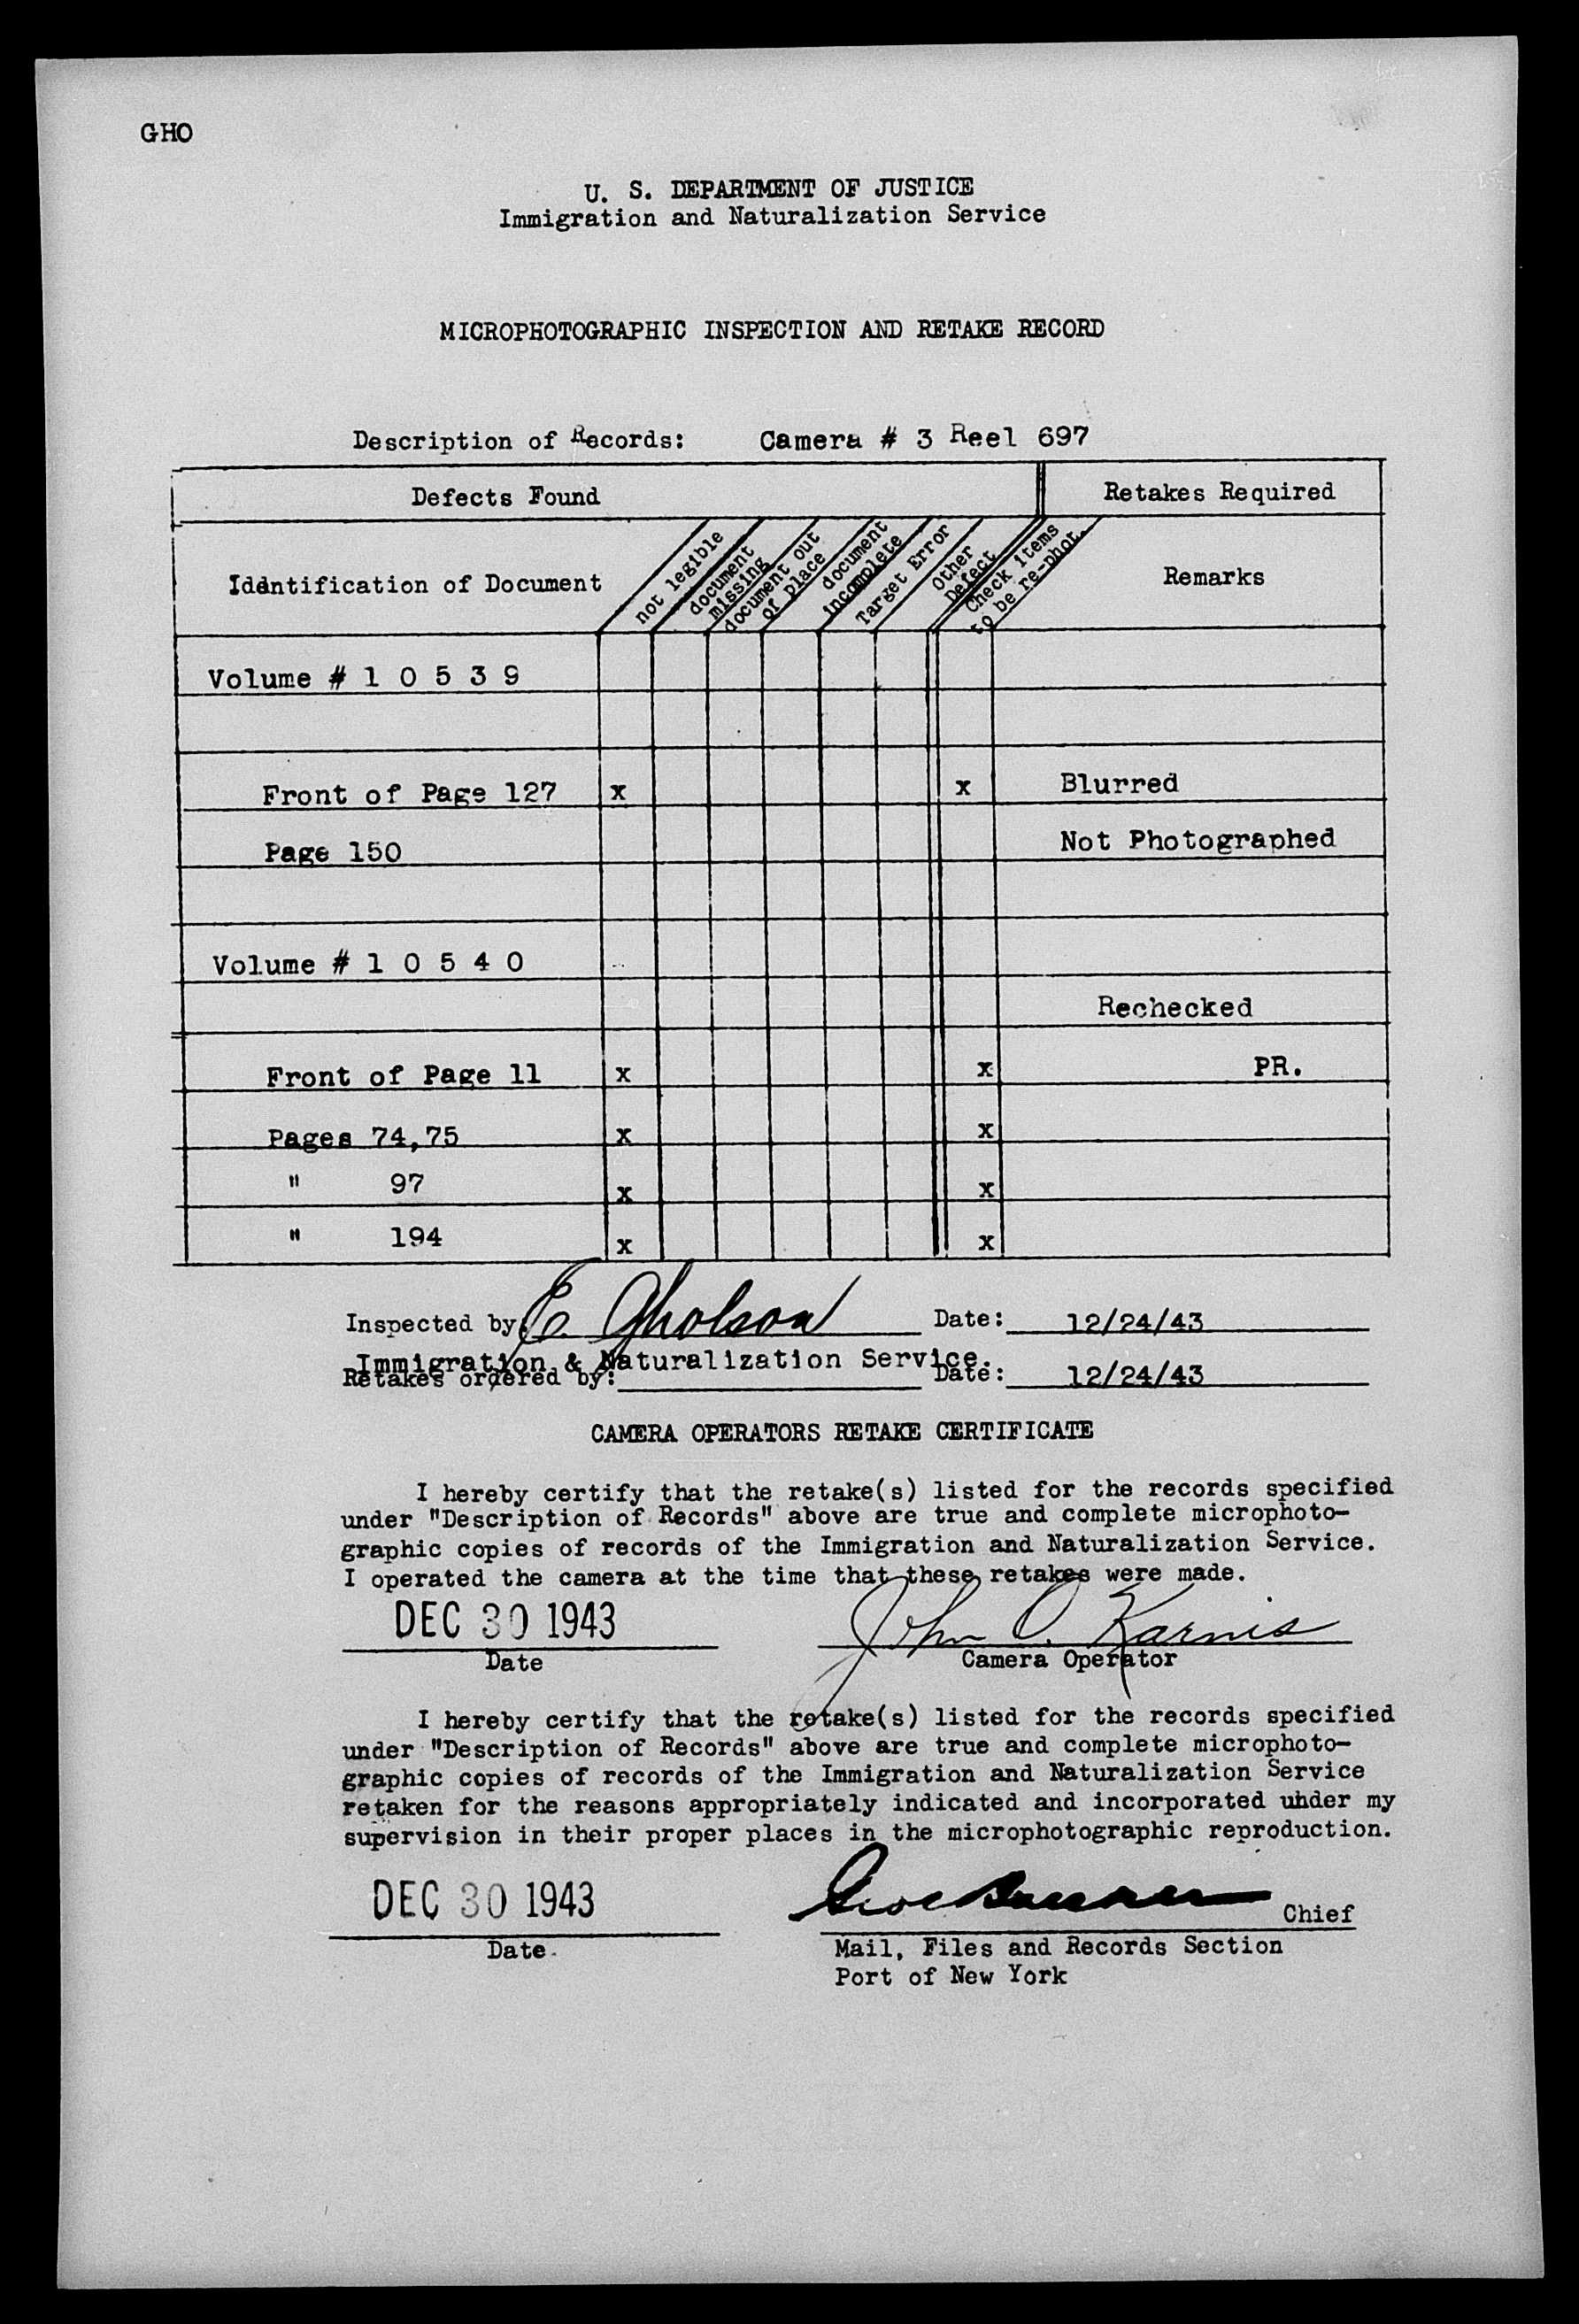 GHO
U. S. DEPARTMENT OF JUSTICE
Immigration and Naturalization Service
MICROPHOTOGRAPHIC INSPECTION AND RETAKE RECORD
Description of Records: Camera # 3 Reel 697
Defects Found Retakes Required
Iddntification of Document not legible document missing document out of place document incomplete Target Error Other Defect Check items to be re-phot. Remarks
Volume # 1 0 5 3 9
Front of Page 127 x x Blurred
Page 150 Not Photographed
Volume # 1 0 5 4 0
Rechecked
Front of Page 11 x x PR.
Pages 74,75 x x
" 97 x x
" 194 x x
Inspected by: E. Gholson Date: 12/24/43
Immigration & Naturalization Service.
Retakes ordered by: Date: 12/24/43
CAMERA OPERATORS RETAKE CERTIFICATE
I hereby certify that the retake(s) listed for the records specified
under "Description of Records" above are true and complete microphoto-
graphic copies of records of the Immigration and Naturalization Service.
I operated the camera at the time that these retakes were made.
DEC 30 1943 John O. Karnis
Date Camera Operator
I hereby certify that the retake(s) listed for the records specified
under "Description of Records" above are true and complete microphoto-
graphic copies of records of the Immigration and Naturalization Service
retaken for the reasons appropriately indicated and incorporated uhder my
supervision in their proper places in the microphotographic reproduction.
DEC 30 1943 Chief
Date Mail, Files and Records Section
Port of New York